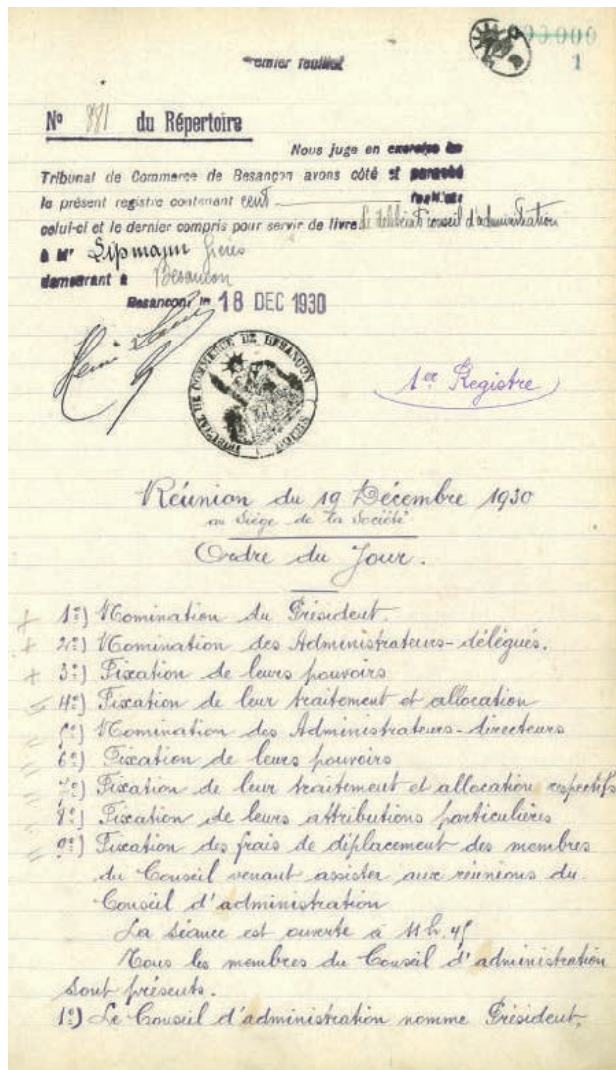 000000
1
Premier feuillet
Nº 881 du Répertoire
Nous juge en exercice au
Tribunal de Commerce de Besançon avons côté et paraphé
le présent registre contenant cent feuillets
celui-ci et le dernier compris pour servir de livre de délibérat conseil d'administration
à Mr Lipmann frères
demeurant à Besancon
Besançon, le 18 DEC 1930
TRIBUNAL DE COMMERCE DE BESANÇON
1er Registre
Réunion du 19 Décembre 1930
au Siège de la Société
Ordre du Jour.
1º) Nomination du Président.
2º) Nomination des Administrateurs-délégués.
3º) Fixation de leurs pouvoirs
4º) Fixation de leur traitement et allocation
5º) Nomination des Administrateurs-directeurs
6º) Fixation de leurs pouvoirs
7º) Fixation de leur traitement et allocation respectifs
8º) Fixation de leurs attributions particulières
9º) Fixation des frais de déplacement des membres
du Conseil venant assister aux réunions du
Conseil d'administration
La séance est ouverte à 11 h. 45
Tous les membres du Conseil d'administration
sont présents.
1º) Le Conseil d'administration nomme Président,